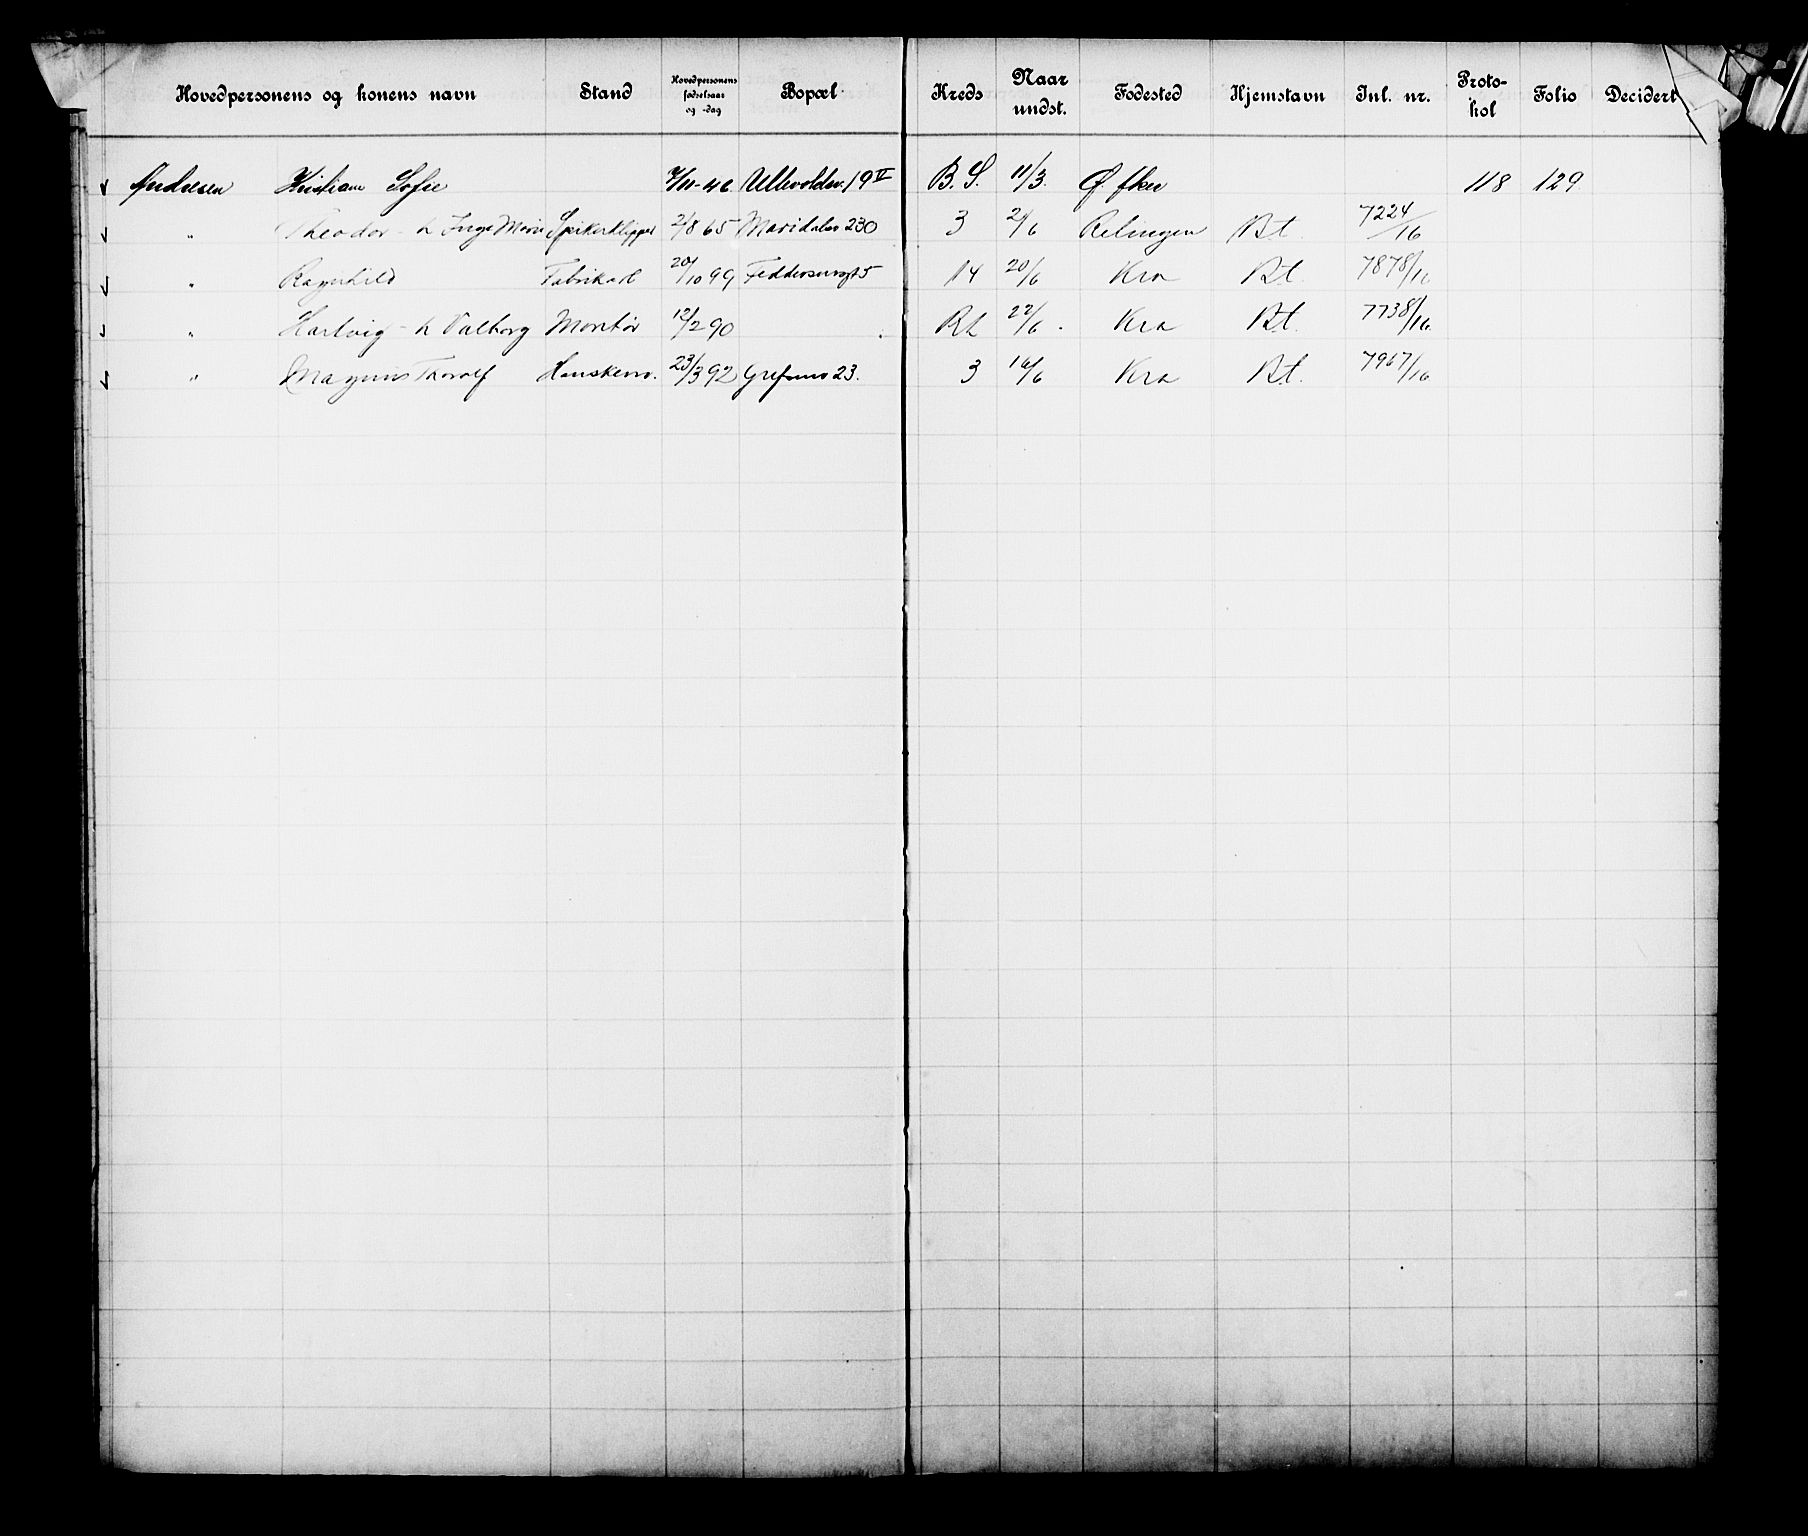 Hovedpersonens og konens navn Stand Hovedpersonens fødselsaar og -dag Bopæl Kreds Naar undst. Fødested Hjemstavn Jnl. nr. Protokol Folio Decidert
Andresen Kristiane Sofie 46 Ullevoldsv. 19 II B. S. 11/3 118 129
" Theodor - h Inga Marie Spikerklipper 2/8 65 Maridalsv 230 3 21/6 Rælingen Bt. 7224/16
" Ragnhild Fabrikarb 20/10 99 Feddersensgt 5 14 20/6 Kra Bt. 7878/16
" Hartvig - h Valborg Montør 12/2 90 22/6 Kra Bt. 7738/16
" Magnus Thoralf 23/3 92 Grefsenv 23. 3 16/6 Kra Bt. 7967/16